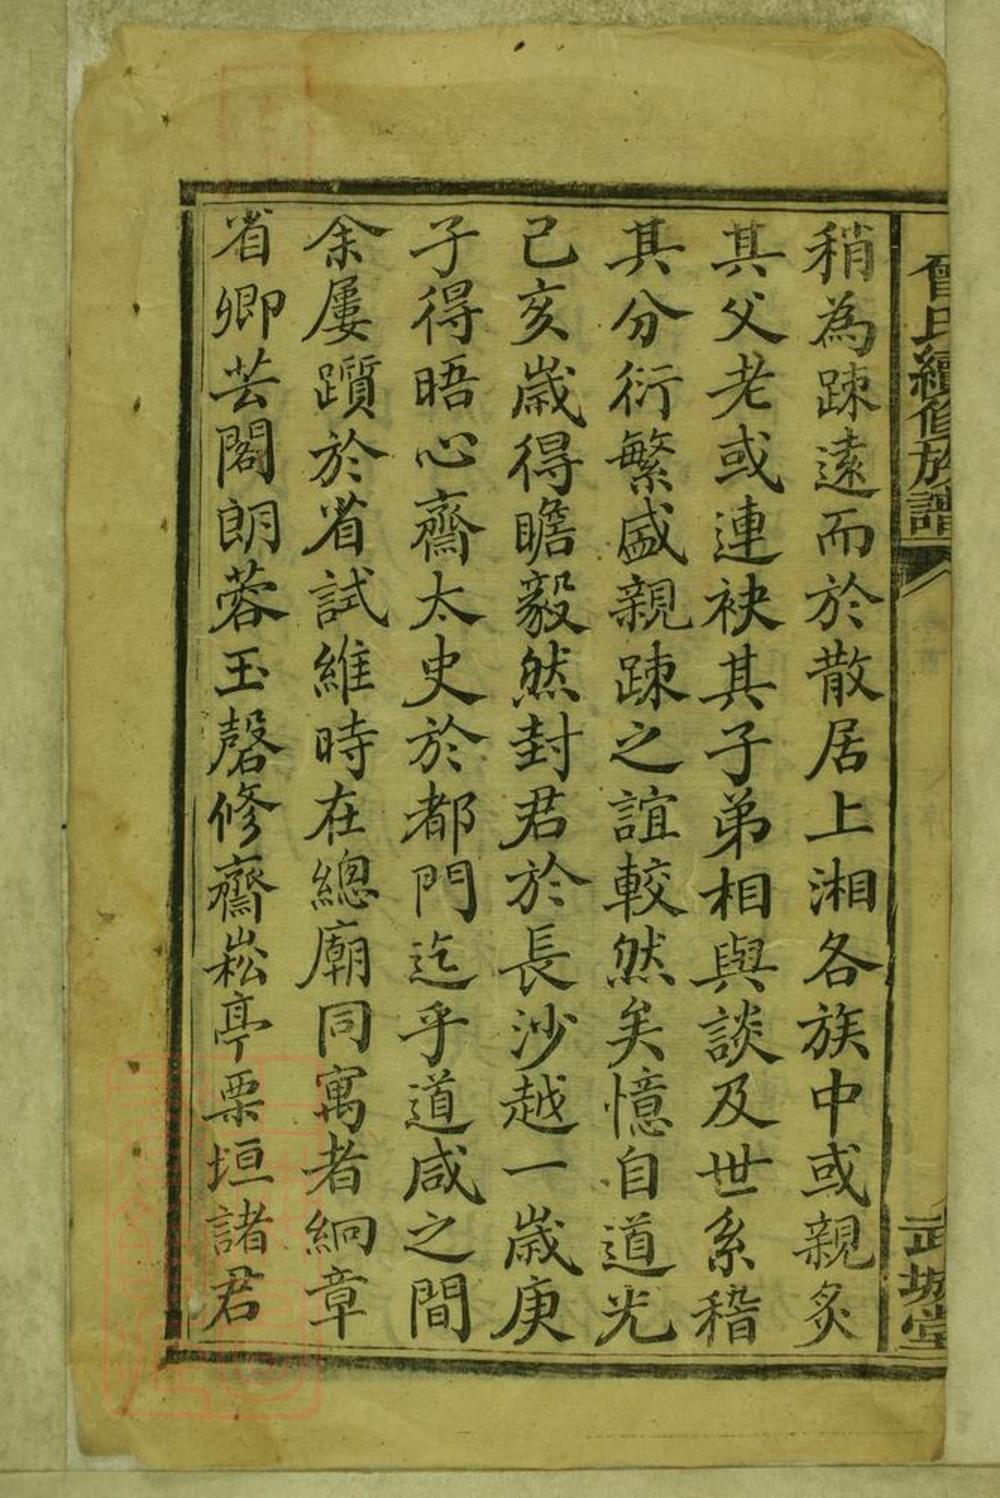 曾氏續修族譜
武城堂
稍為踈遠而於散居上湘各族中或親炙
其父老或連袂其子弟相與談及世系稽
其分衍繁盛親踈之誼較然矣憶自道光
己亥嵗得瞻毅然封君於長沙越一嵗庚
子得晤心齋太史於都門迄乎道咸之間
余屢躓於省試維時在總廟同寓者絅章
省卿芸閣朗蓉玉磬修齋崧亭栗垣諸君